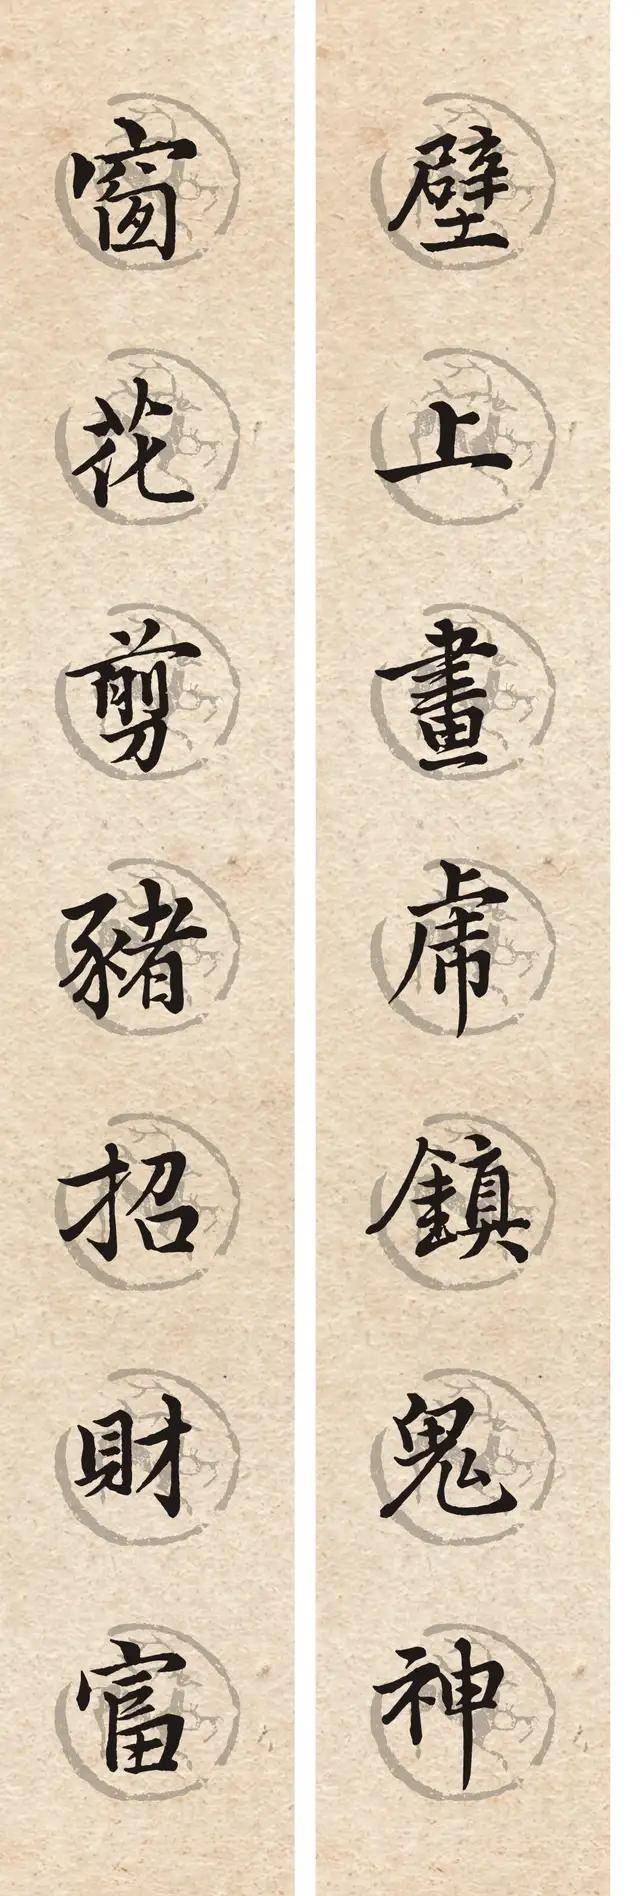 壁上畫虎鎮鬼神
窗花剪豬招財富